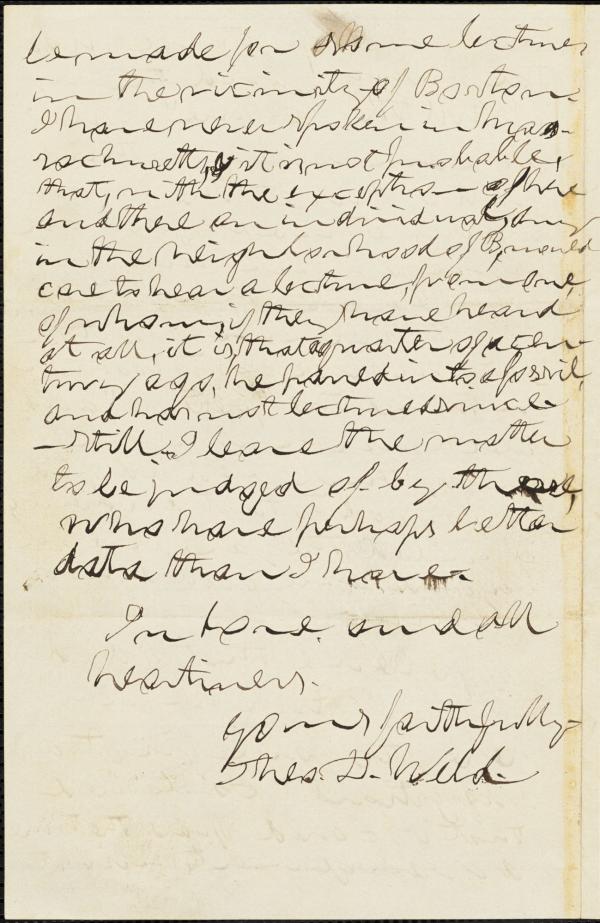 be made for some lectures
in the vicinity of Boston.
I have never spoken in Mas-
sachusetts, & it is not probable,
that, with the exception of here
and there an individual, any
in the neighborhood of B, would
care to hear a lecture, from one,
of whom, if they have heard
at all, it is, that a quarter of a cen-
tury ago, he passed into a fossil,
and has not lectured since—
—still, I leave the matter
to be judged of by those,
who have perhaps better
data than I have—
In love, and all
heartiness.
yours faithfully—
Theo. D. Weld.